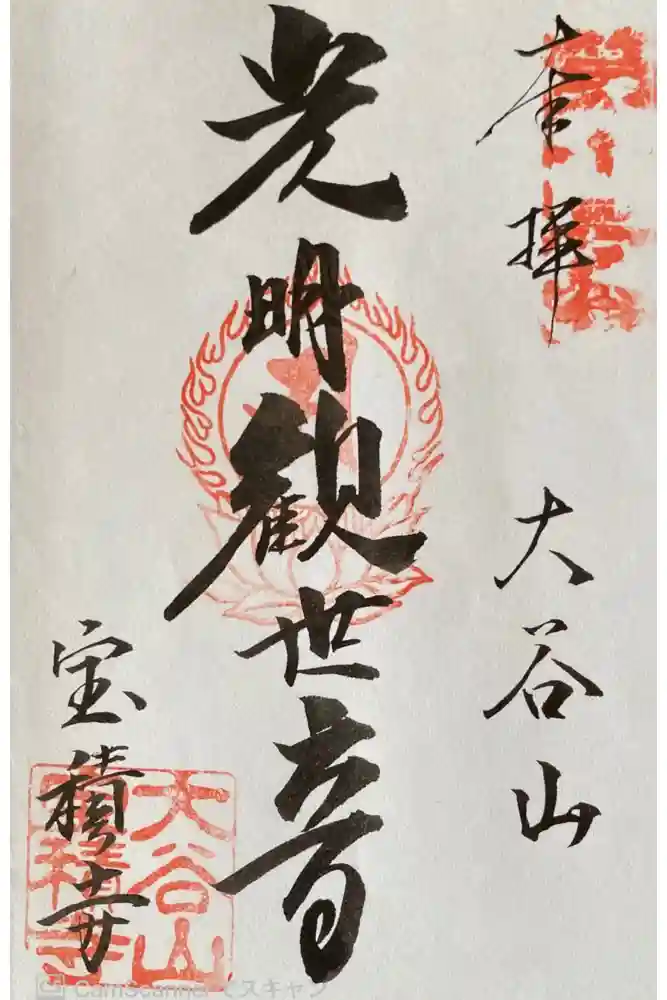 奉拝
大谷山
光明観世音
宝積寺
大谷山
宝積寺
CamScannerでスキャン